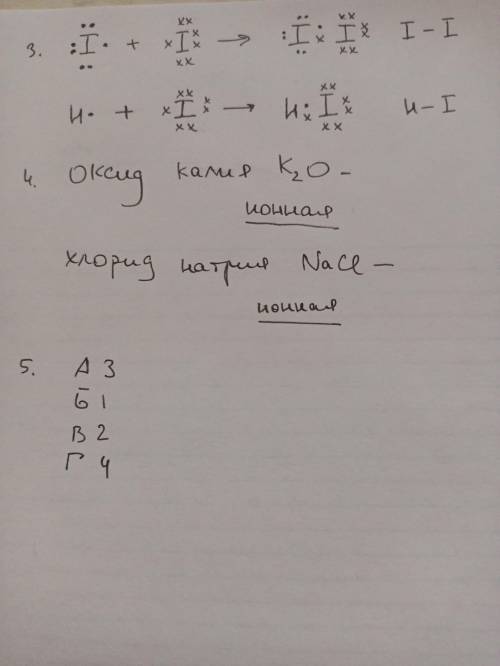 3. I + I → I I I – I
H· + I → H I H – I
4. Оксид калия K₂O –
ионная
хлорид натрия NaCl –
ионная
5. А 3
Б 1
В 2
Г 4